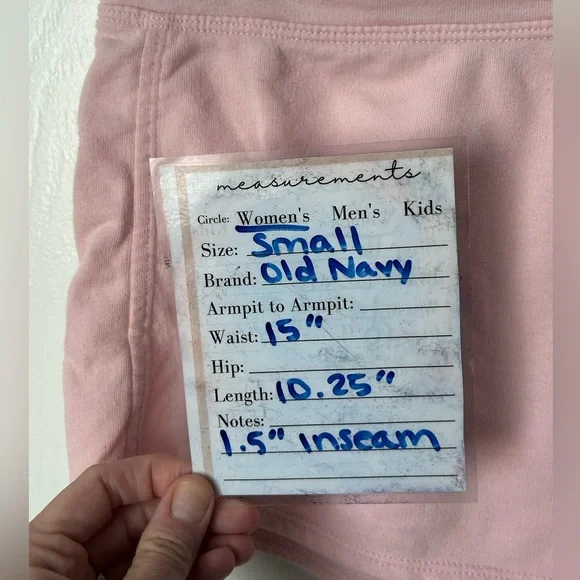 measurements
Circle: Women's Men's Kids
Size: Small
Brand: Old Navy
Armpit to Armpit:
Waist: 15"
Hip:
Length: 10.25"
Notes:
1.5" inseam